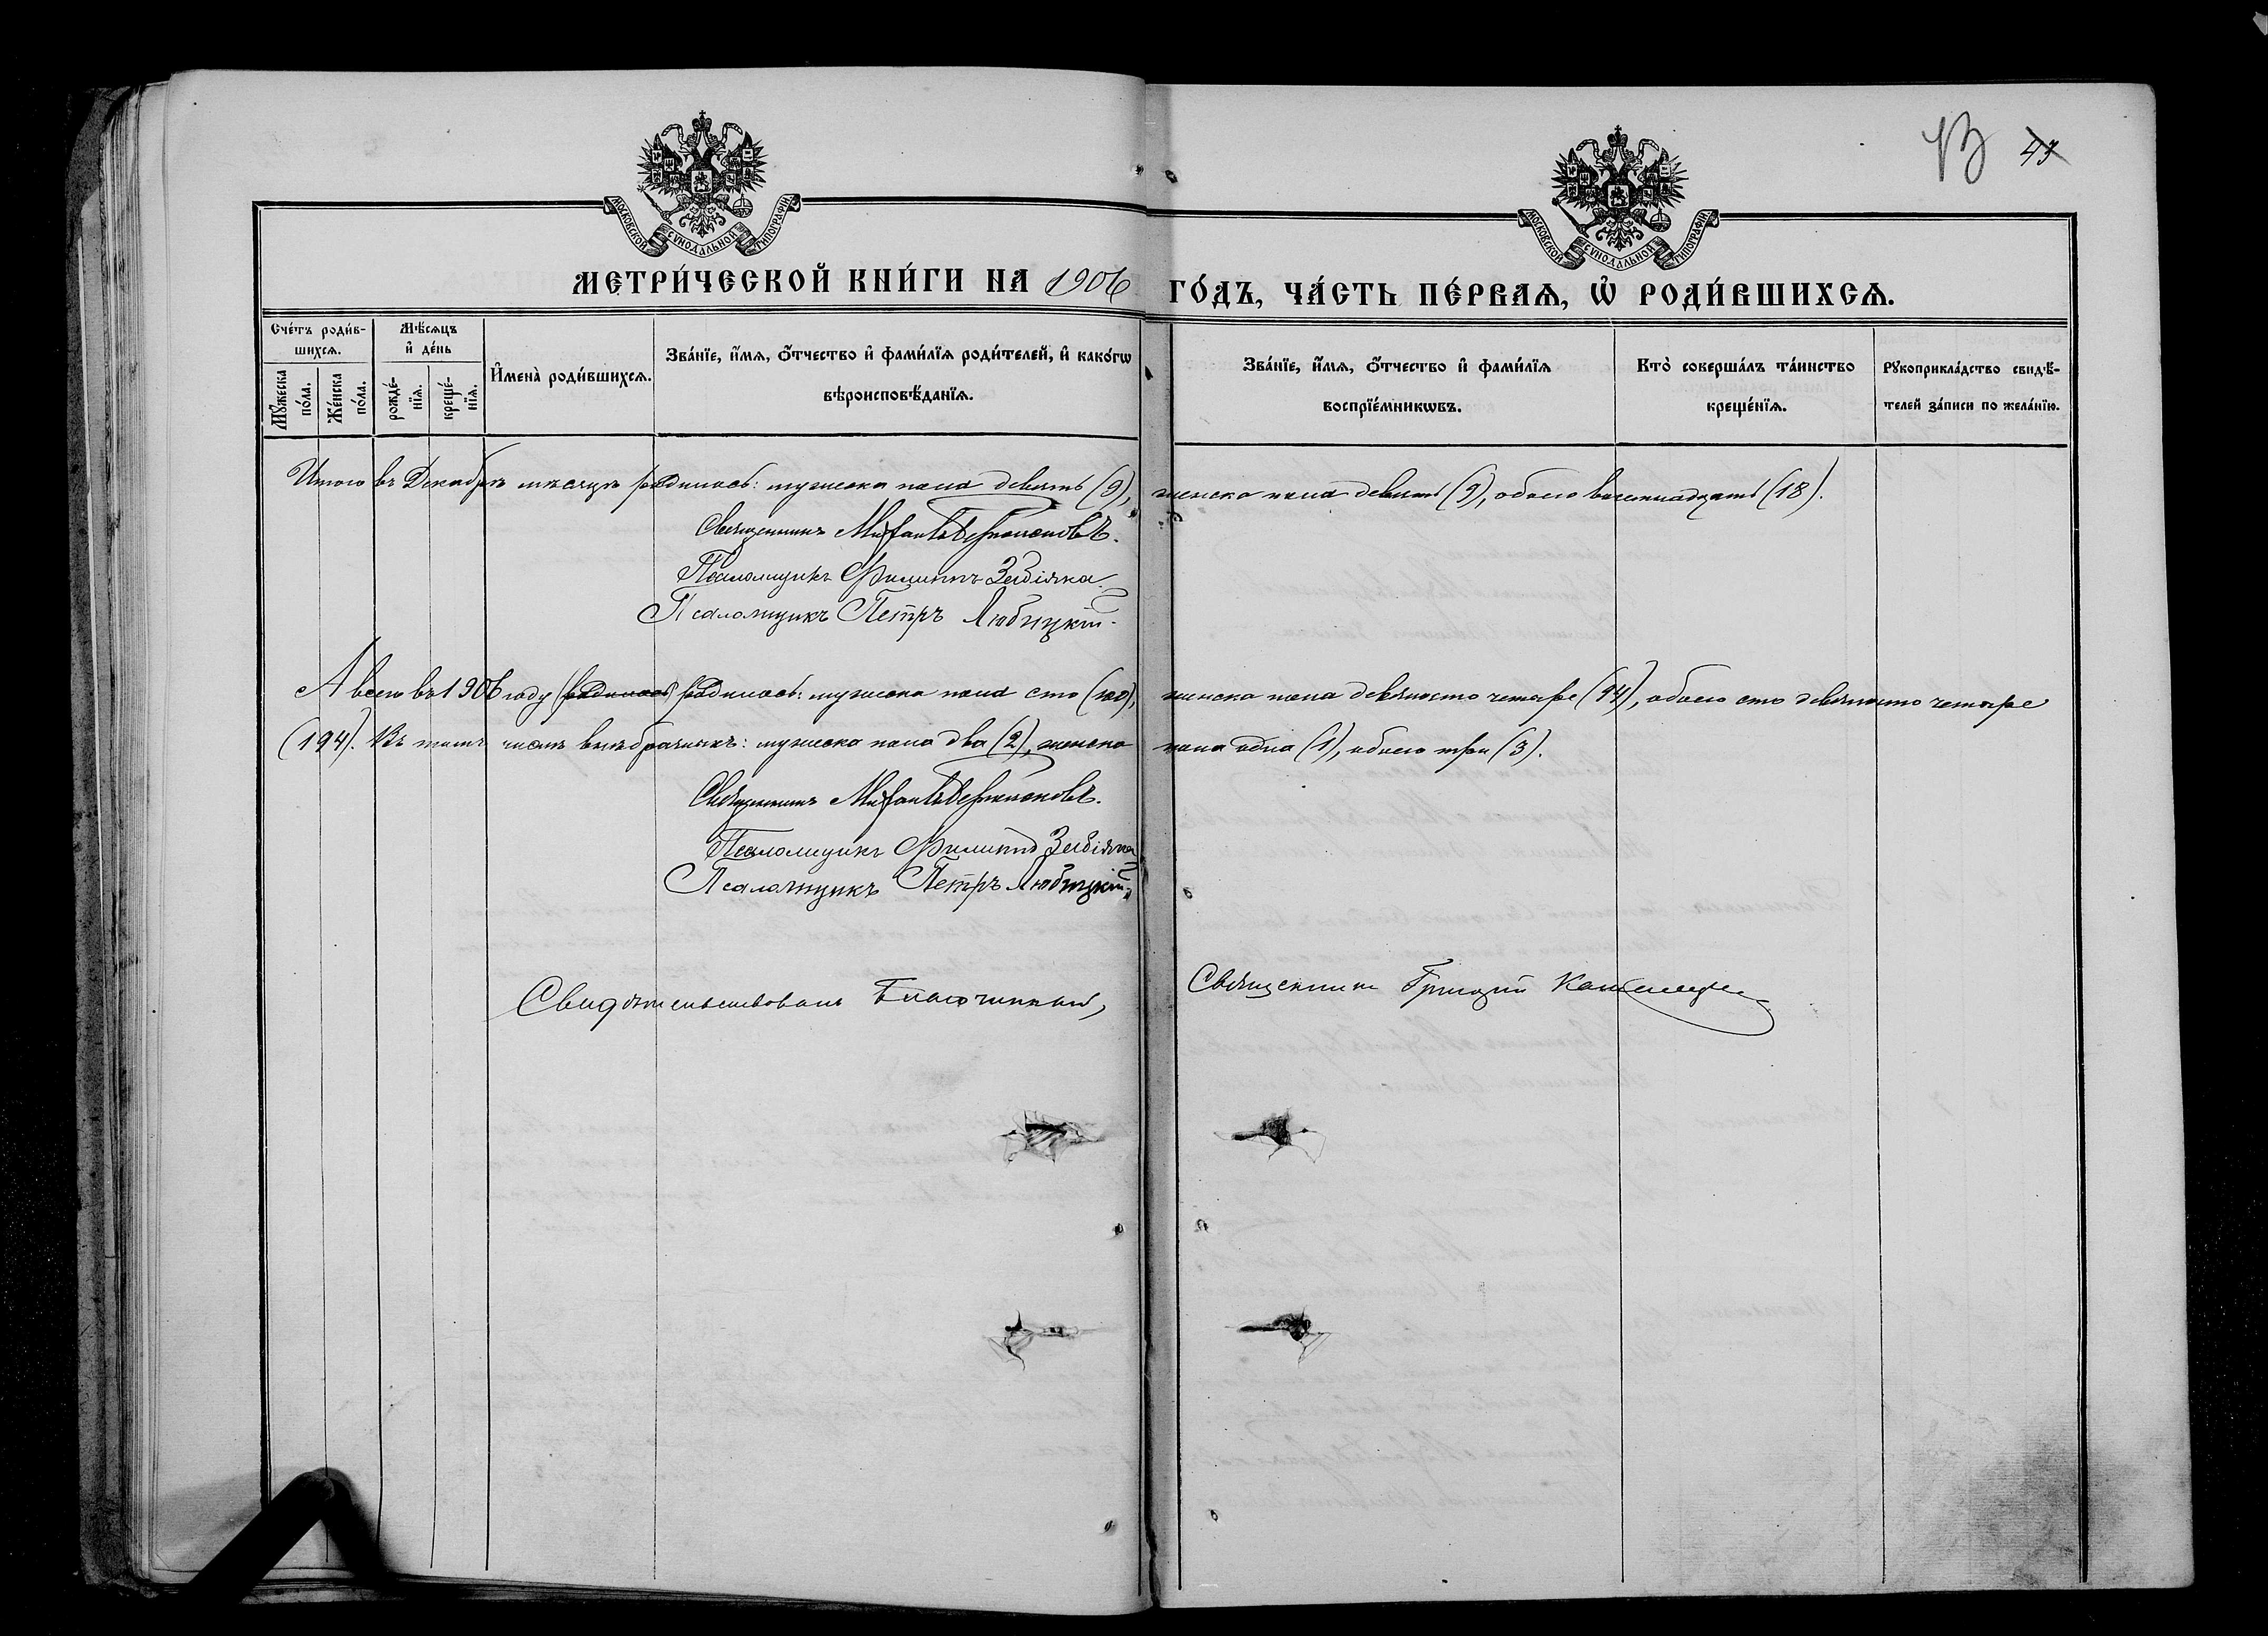 43
МОСКОВСКОЙ СѴНОДАЛЬНОЙ ТИПОГРАФІИ
МОСКОВСКОЙ СѴНОДАЛЬНОЙ ТИПОГРАФІИ
МЕТРИ́ЧЕСКОЙ КНИ́ГИ НА 1906 ГО́ДЪ, ЧА́СТЬ ПЕ́РВАѦ, Ѡ҆ РОДИ́ВШИХСѦ.
Сче́тъ роди́в-
шихсѧ.
Мꙋ́жеска по́ла.
Же́нска по́ла.
Мѣ́сѧцъ
и҆ де́нь
рожде́-
нїѧ.
креще́-
нїѧ.
И҆мена̀ роди́вшихсѧ.
Зва́нїе, и҆́мѧ, ѻ҆́тчество и҆ фами́лїѧ роди́телей, и҆ како́гѡ
вѣроисповѣ́данїѧ.
Зва́нїе, и҆́мѧ, ѻ҆́тчество и҆ фами́лїѧ
воспрїе́мникѡвъ.
Кто̀ соверша́лъ та́инство
креще́нїѧ.
Рꙋкоприкла́дство свидѣ́-
телей за́писи по жела́нїю.
Итого въ Декабрѣ мѣсяцѣ родилось: мужеска пола девять (9), женска пола девять (9), обоего восемнадцать (18).
Священникъ Михаилъ
Псаломщикъ Филиппъ Забіяка.
Псаломщикъ Петръ Любицкій.
А всего въ 1906 году (родилось) родилось: мужеска пола сто (100), женска пола девяносто четыре (94), обоего сто девяносто четыре
(194). Въ томъ числѣ внѣбрачныхъ: мужеска пола два (2), женска пола одна (1), обоего три (3).
Священникъ Михаилъ
Псаломщикъ Филиппъ Забіяка
Псаломщикъ Петръ Любицкій.
Свидѣтельствовалъ Благочинный, Священникъ Григорій